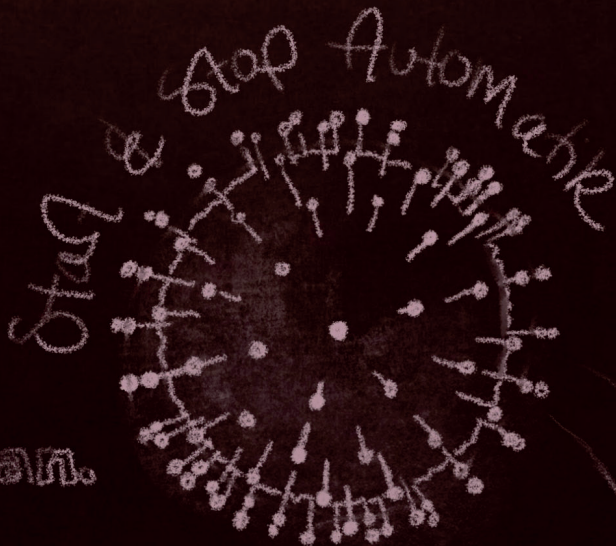 Stay & Stop Automatik
an.